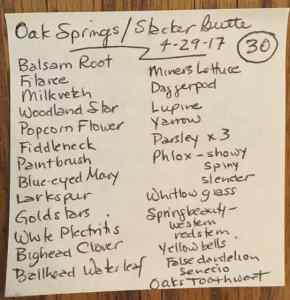 Oak Springs/Stacker Butte
4-29-17
30
Balsam Root
Filaree
Milkvetch
Woodland Star
Popcorn Flower
Fiddleneck
Paintbrush
Blue-eyed Mary
Larkspur
Goldstars
White Plectritis
Bighead Clover
Ballhead Waterleaf
Miner's Lettuce
Daggerpod
Lupine
Yarrow
Parsley x 3
Phlox - showy
spiny
slender
Whitlow grass
Springbeauty -
western
redstem
Yellowbells
False dandelion
Senecio
Oaks Toothwort